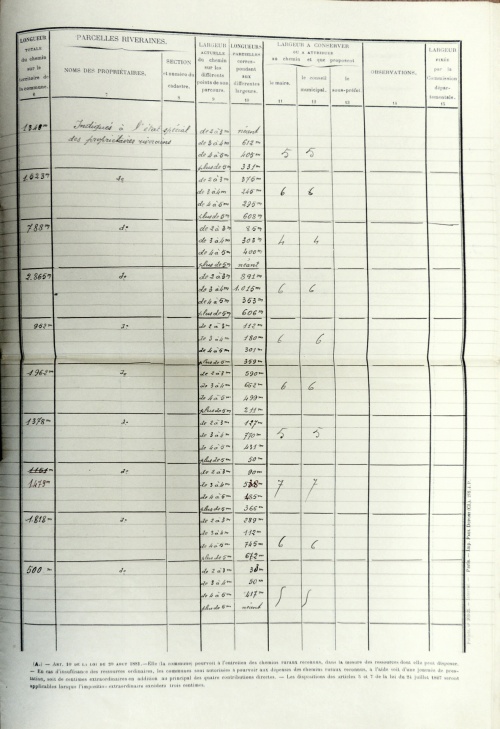 LONGUEUR TOTALE du chemin sur le territoire de la commune. 6
PARCELLES RIVERAINES.
NOMS DES PROPRIÉTAIRES. 7
SECTION et numéro du cadastre. 8
LARGEUR ACTUELLE du chemin sur les différents points de son parcours. 9
LONGUEURS PARTIELLES correspondant aux différentes largeurs. 10
LARGEUR A CONSERVER OU A ATTRIBUER au chemin et que proposent
le maire. 11
le conseil municipal. 12
le sous-préfet. 13
OBSERVATIONS. 14
LARGEUR fixée par la Commission départementale. 15
1348m Indiqués à l'état spécial de 2 à 3m néant
des propriétaires riverains de 3 à 4m 612m
de 4 à 5m 405m 5 5
plus de 5m 331m
1.523m do de 2 à 3m 375m
de 3 à 4m 245m 6 6
de 4 à 5m 295m
plus de 5m 608m
788m do de 2 à 3m 85m
de 3 à 4m 303m 4 4
de 4 à 5m 400m
plus de 5m néant
2.865m do de 2 à 3m 891m
de 3 à 4m 1.015m 6 6
de 4 à 5m 353m
plus de 5m 606m
952m do de 2 à 3m 112m
de 3 à 4m 180m 6 6
de 4 à 5m 301m
plus de 5m 359m
1962m do de 2 à 3m 590m
de 3 à 4m 662m 6 6
de 4 à 5m 499m
plus de 5m 211m
1378m do de 2 à 3m 127m
de 3 à 4m 770m 5 5
de 4 à 5m 431m
plus de 5m 50m
1151 do de 2 à 3m 90m
1.478m de 3 à 4m 538m 7 7
de 4 à 5m 485m
plus de 5m 365m
1.818m do de 2 à 3m 289m
de 3 à 4m 112m
de 4 à 5m 745m 6 6
plus de 5m 672m
500m do de 2 à 3m 33m
de 3 à 4m 50m
de 4 à 5m 417m 5 5
plus de 5m néant
(A.) — ART. 10 DE LA LOI DU 20 AOUT 1881. — Elle (la commune) pourvoit à l'entretien des chemins ruraux reconnus, dans la mesure des ressources dont elle peut disposer.
— En cas d'insuffisance des ressources ordinaires, les communes sont autorisées à pourvoir aux dépenses des chemins ruraux reconnus, à l'aide soit d'une journée de prestation, soit de centimes extraordinaires en addition au principal des quatre contributions directes. — Les dispositions des articles 5 et 7 de la loi du 24 juillet 1867 seront
applicables lorsque l'imposition extraordinaire excédera trois centimes.